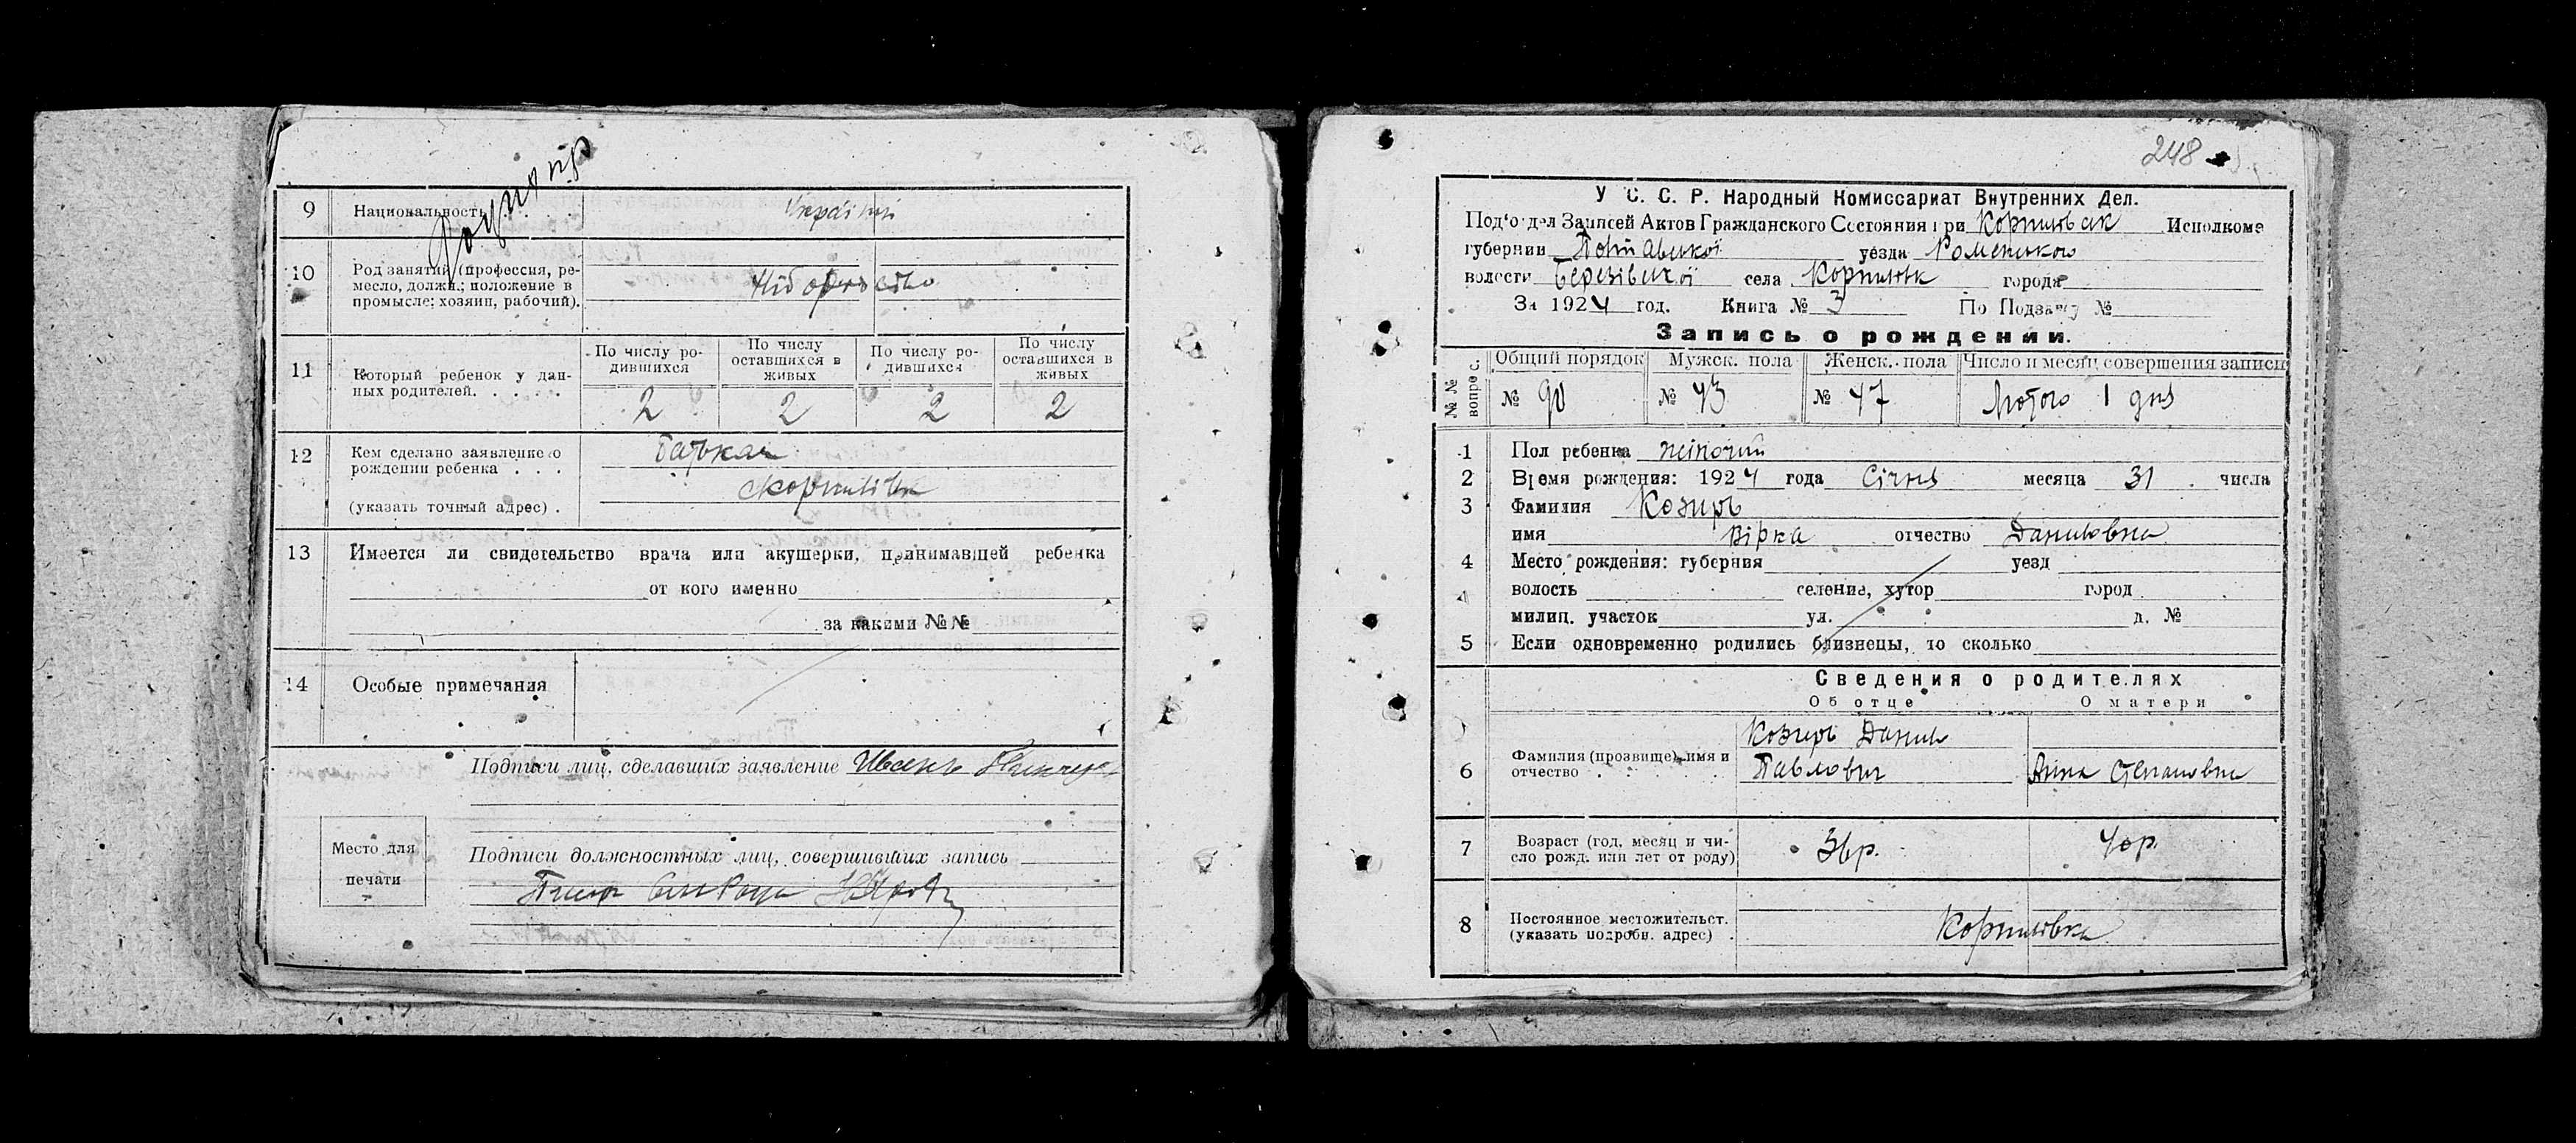 9 Национальность . . . . Україн
10 Род занятий (профессия, ре-
месло, должн.; положение в
промысле: хозяин, рабочий). Хліборобство
11 Который ребенок у дан-
ных родителей. . . . . .
По числу ро-
дившихся
По числу
оставшихся в
живых
По числу ро-
дившихся
По числу
оставшихся в
живых
2 2 2 2
12 Кем сделано заявление о
рождении ребенка . . . Батьком
(указать точный адрес) . с Корнилівк
13 Имеется ли свидетельство врача или акушерки, принимавшей ребенка
от кого именно
за какими № №
14 Особые примечания
Подписи лиц, сделавших заявление Иванъ
Место для
печати
Подписи должностных лиц, совершивших запись
248
У С. С. Р. Народный Комиссариат Внутренних Дел.
Под'отдел Записей Актов Гражданского Состояния при Исполкоме
губернии Полтавської уезда Роменського
волости Березівської села Корнилівк города
За 1924 год. Книга № 3 По Подзагу №
Запись о рождении.
№ № вопрос.
Общий порядок Мужск. пола Женск. пола Число и месяц совершения записи
№ 90 № 43 № 47 Лютого 1 дня
1 Пол ребенка жіночий
2 Время рождения: 1924 года Січня месяца 31 числа
3 Фамилия Козирь
имя Вірка отчество Даниловна
4 Место рождения: губерния уезд
волость селение, хутор город
милиц. участок ул. д. №
5 Если одновременно родились близнецы, то сколько
Сведения о родителях
Об отце О матери
6 Фамилия (прозвище), имя и
отчество . . . . .
Козирь Данило
Павлович Анна Степановна
7 Возраст (год, месяц и чи-
сло рожд. или лет от роду) 36р. 40р.
8 Постоянное местожительст.
(указать подробн. адрес) . Корниловка